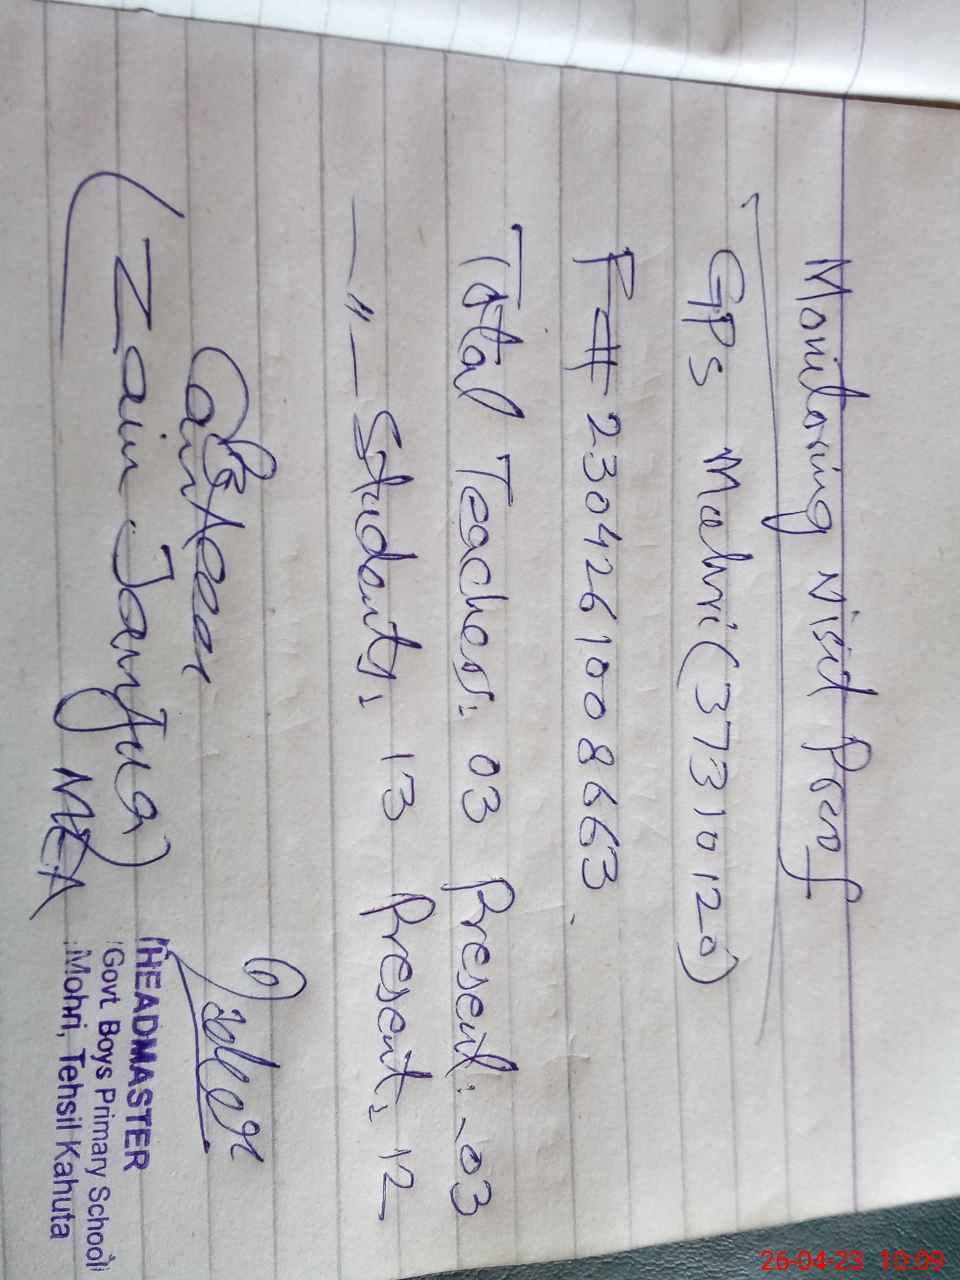 Monitoring Visit Proof
GPS Mohri (37310120)
F# 2304261008663
Total Teachers: 03 Present: 03
—"— Students: 13 Present: 12
(Zain Janjua)
MEA
HEADMASTER
Govt. Boys Primary School
Mohri, Tehsil Kahuta
26-04-23 10:09